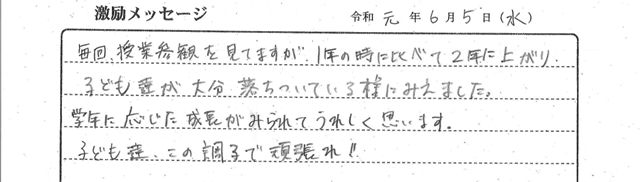 激励メッセージ 令和 元 年 6 月 5 日 (水)
毎回、授業参観を見てますが、1年の時に比べて2年に上がり、
子ども達が大分落ちついている様にみえました。
学年に応じた成長がみられてうれしく思います。
子ども達、この調子で頑張れ!!